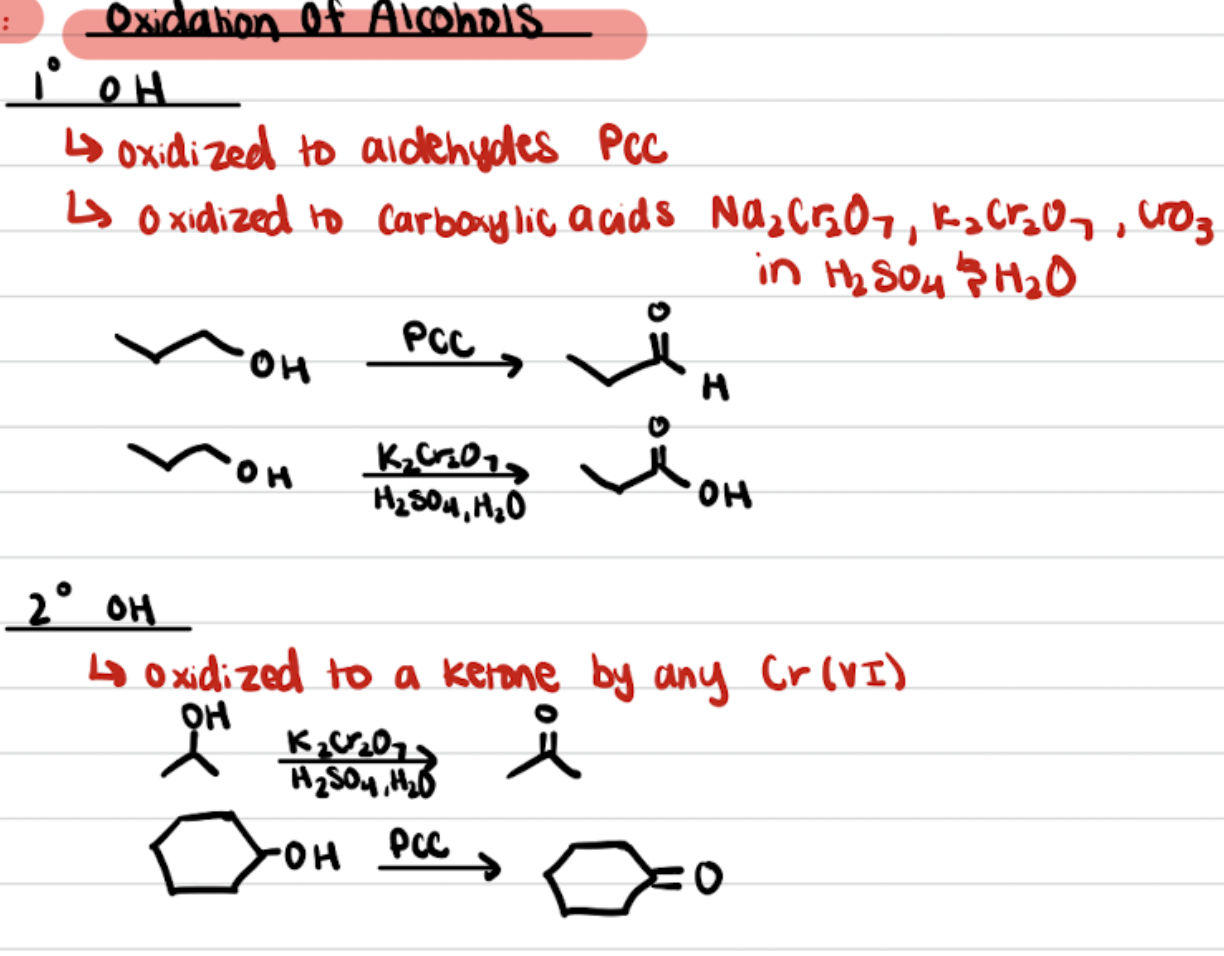 :
Oxidation Of Alcohols
1° OH
↳ oxidized to aldehydes PCC
↳ oxidized to carboxylic acids Na₂Cr₂O₇, K₂Cr₂O₇, CrO₃
in H₂SO₄ & H₂O
OH PCC O H
OH K₂Cr₂O₇ H₂SO₄, H₂O O OH
2° OH
↳ oxidized to a ketone by any Cr(VI)
OH K₂Cr₂O₇ H₂SO₄, H₂O O
OH PCC O